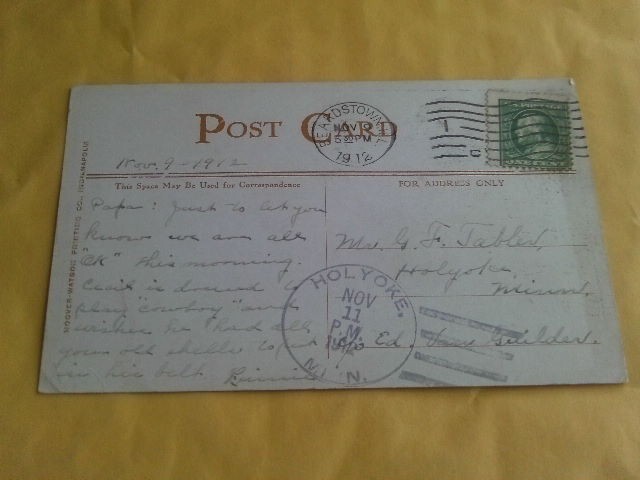 POST CARD
BEARDSTOWN
NOV 9
5 PM
1912
Nov. 9 - 1912
This Space May Be Used for Correspondence
FOR ADDRESS ONLY
HOOVER-WATSON PRINTING CO., INDIANAPOLIS
Papa: Just to let you
know we are all
"OK" this morning.
Cecil is dressed
play "cowboy" and
wishes he had all
your old shells to
in his belt.
Mr. G. F. Tabler,
Holyoke,
Minn.
Ed.
HOLYOKE,
NOV
11
P.M.
MINN.